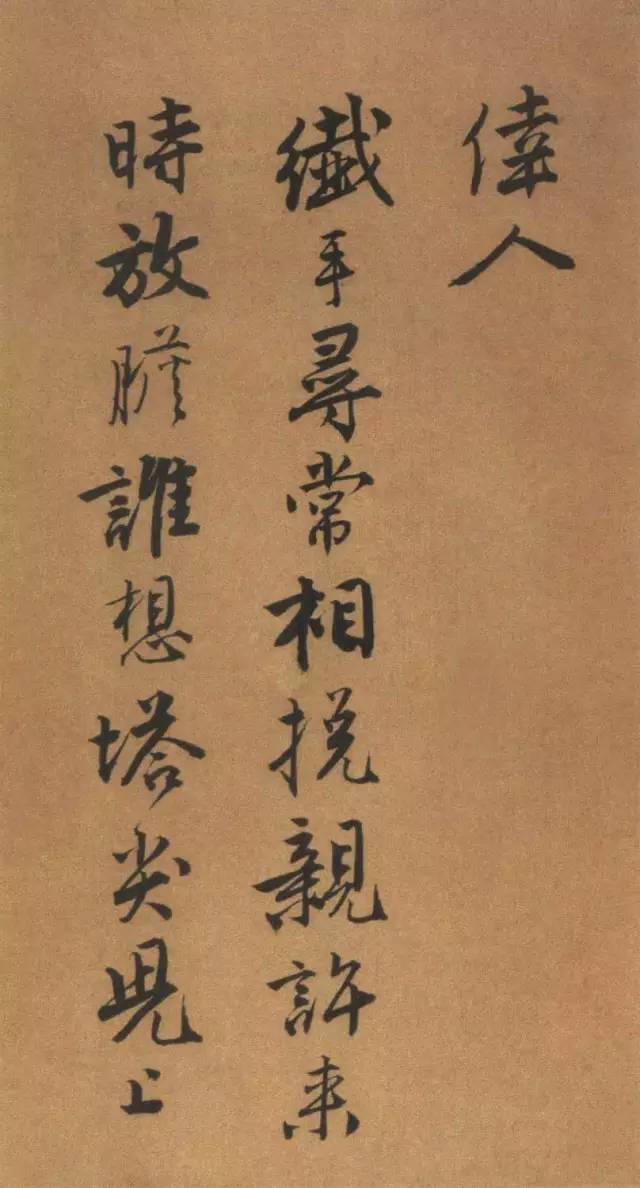 偉人
纖手尋常相挽親許来
時放膽誰想塔尖兒上